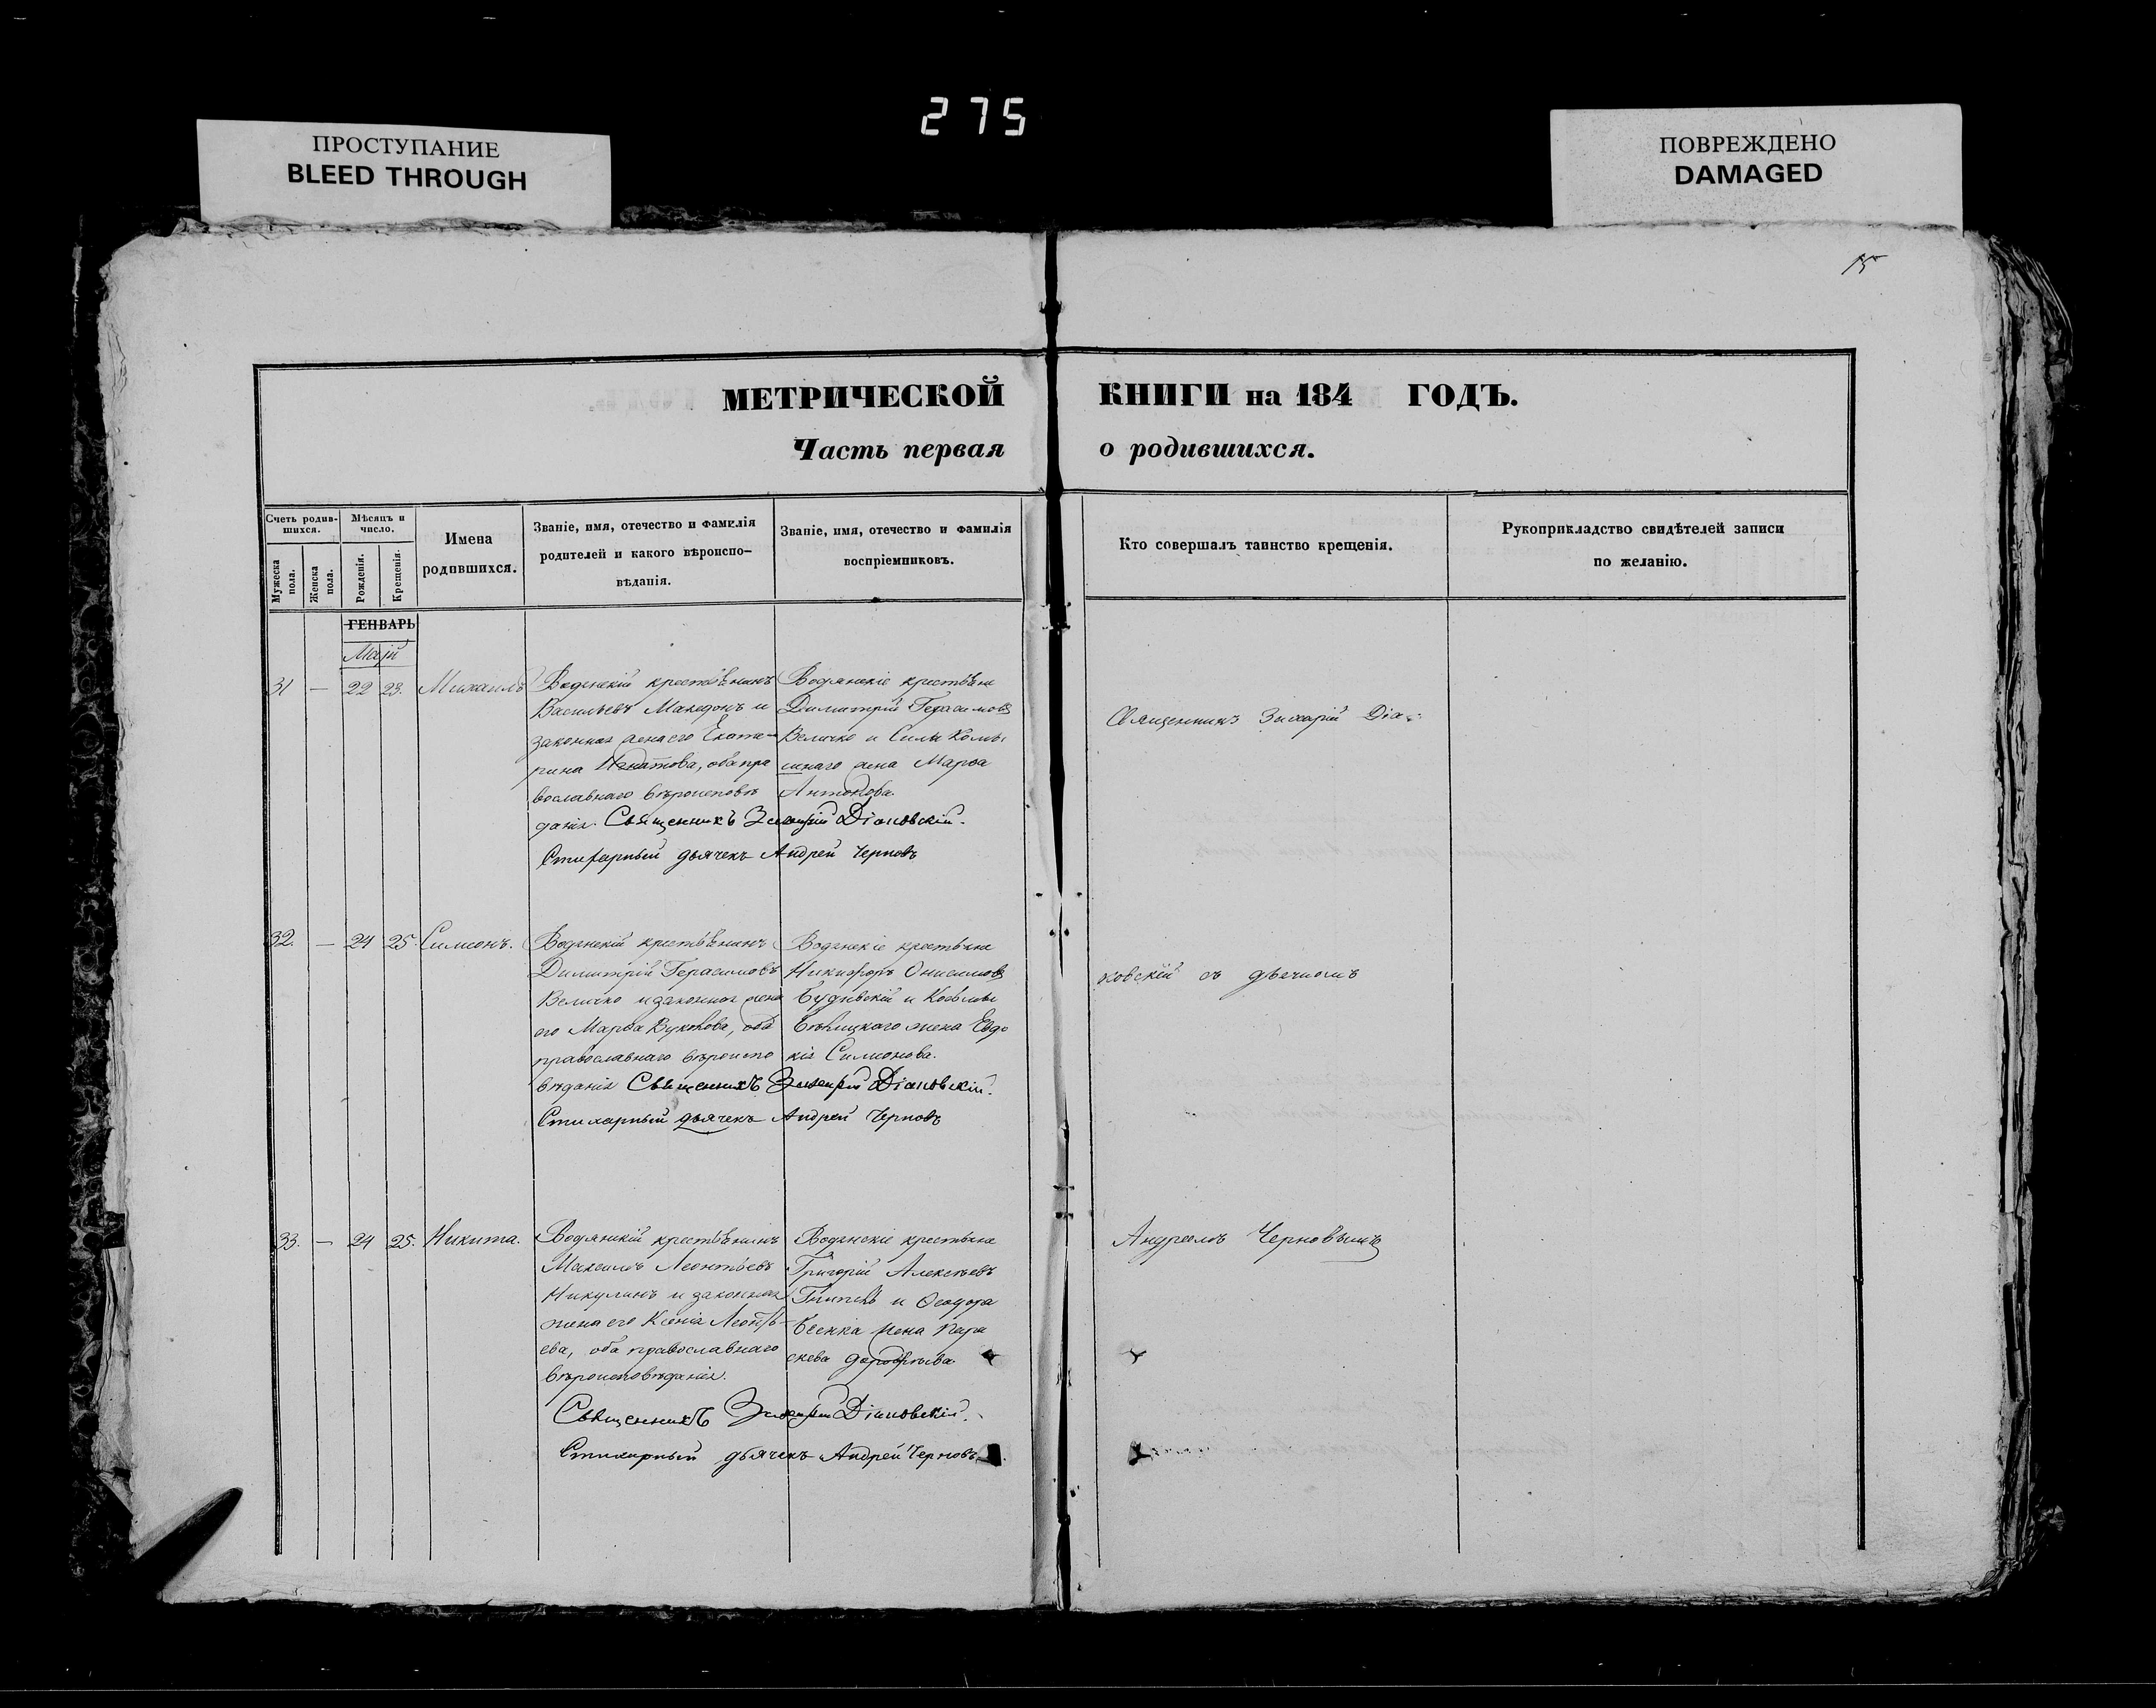 275
ПРОСТУПАНИЕ
BLEED THROUGH
ПОВРЕЖДЕНО
DAMAGED
15
МЕТРИЧЕСКОЙ КНИГИ на 184 ГОДЪ.
Часть первая о родившихся.
Счетъ родив-
шихся.
Мужеска
пола.
Женска
пола.
Мѣсяцъ и
число.
Рожденія.
Крещенія.
Имена
родившихся.
Званіе, имя, отечество и фамилія
родителей и какого вѣроиспо-
вѣданія.
Званіе, имя, отечество и фамилія
воспріемниковъ.
Кто совершалъ таинство крещенія.
Рукоприкладство свидѣтелей записи
по желанію.
ГЕНВАРЬ
Маій
31 — 22 23. Михаилъ
Водянскій крестьянинъ
Васильевъ Македонъ и
законная жена его Екате-
рина Игнатова, оба пра
вославнаго вѣроисповѣ
данія. Священникъ Захарій Діаковскій.
Стихарный дьячекъ Андрей Черновъ
Водянскіе крестьяне
Димитрій Герасимовъ
Величко и Силы
жена Марѳа
Антонова.
Священникъ Захарій Діа-
32. — 24 25. Симеонъ.
Водянскій крестьянинъ
Димитрій Герасимовъ
Величко и законная жена
его Марѳа, оба
православнаго вѣроиспо
вѣданія Священникъ Захарій Діаковскій.
Стихарный дьячекъ Андрей Черновъ
Водянскіе крестьяне
Никифоръ Онисимовъ
и
жена Евдо
кія Симонова.
ковскій съ дьячкомъ
33. — 24 25. Никита.
Водянскій крестьянинъ
Максимъ Леонтьевъ
Никулинъ и законная
жена его Ксенія Леонть-
ева, оба православнаго
вѣроисповѣданія.
Священникъ Захарій Діаковскій.
Стихарный дьячекъ Андрей Черновъ.
Водянскіе крестьяне
Григорій Алексѣевъ
и Ѳеодора
жена Пара
скева
Андреемъ Черновымъ